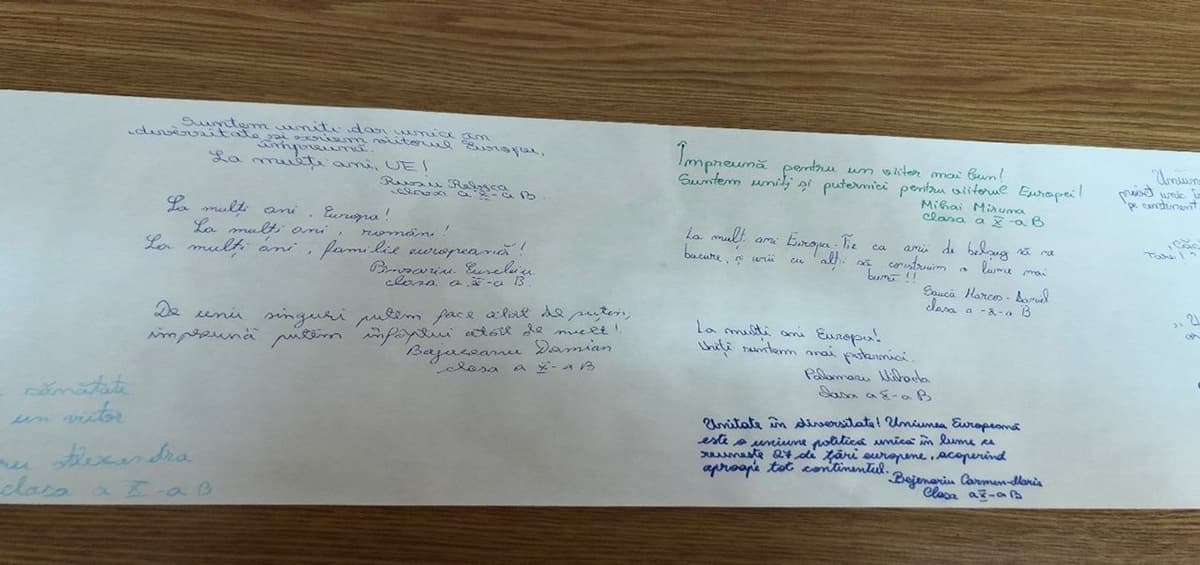 Suntem uniți dar unici în
diversitate și scriem viitorul Europei,
împreună.
La mulți ani, UE!
Rusu Rebeca
clasa a X-a B
La mulți ani, Europa!
La mulți ani, români!
La mulți ani, familie europeană!
clasa a X-a B.
De unii singuri putem face atât de puțin,
împreună putem înfăptui atât de mult!
Damian
clasa a X-a B
sănătate
un viitor
Alexandra
clasa a X-a B
Împreună pentru un viitor mai bun!
Suntem uniți și puternici pentru viitorul Europei!
Mihai Miruna
clasa a X-a B
La mulți ani Europa. Fie ca anii de belșug să ne
bucure, și unii cu alții să construim o lume mai
bună!!
Marcos-Daniel
clasa a -X-a B
La mulți ani Europa!
Uniți suntem mai puternici.
Mihaela
clasa a X-a B
Unitate în diversitate! Uniunea Europeană
este o uniune politică unică în lume ce
reunește 27 de țări europene, acoperind
aproape tot continentul.
Bejenariu Carmen-Maria
Clasa a X-a B
Uniun
proiect unic în
pe continent